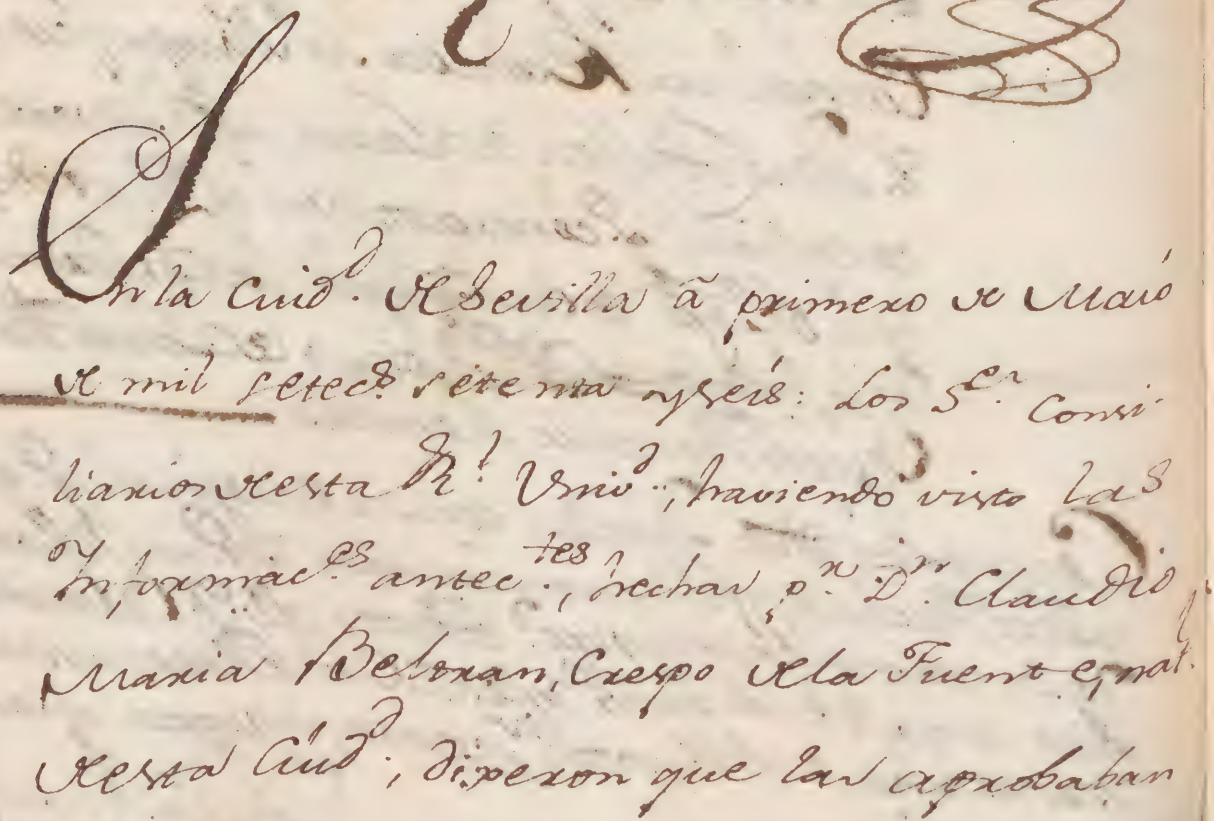 En la Ciud.d de Sevilla à primero de Maió
de mil setec.s setenta y seis: Los S.res Consi-
liarios de esta R.l Univ.d, haviendo visto las
Informac.es antec.tes, hechas p.r D.n Claudio
Maria Beltran, Crespo de la Fuente, nat.l
de esta Ciud.d, dixeron que las aprobaban